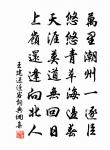 萬里潮州一逐臣
悠悠青草海邊春
天涯莫道無回日
上嶺還逢向北人
王建送遷客詩詞典網書